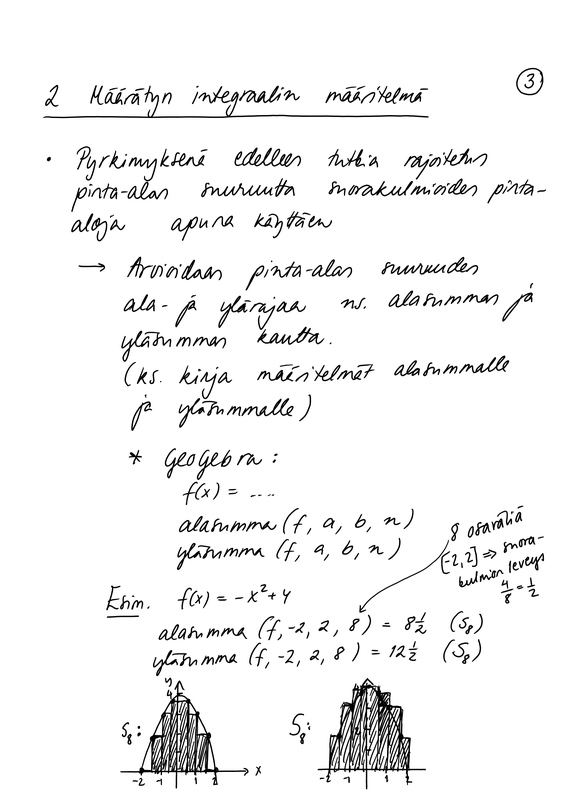 3
2 Määrätyn integraalin määritelmä
• Pyrkimyksenä edelleen tutkia rajoitetun
pinta-alan suuruutta suorakulmioiden pinta-
aloja apuna käyttäen
→ Arvioidaan pinta-alan suuruuden
ala- ja ylärajaa ns. alasumman ja
yläsumman kautta.
(ks. kirja määritelmät alasummalle
ja yläsummalle)
* Geogebra:
f(x) = ....
alasumma (f, a, b, n)
yläsumma (f, a, b, n)
8 osaväliä
[-2,2] ⇒ suora-
kulmion leveys
4/8 = 1/2
Esim. f(x) = -x²+4
alasumma (f, -2, 2, 8) = 8 1/2 (S₈)
yläsumma (f, -2, 2, 8) = 12 1/2 (S₈)
S₈:
y
4
-2 -1 1 2 x
S₈:
-2 -1 1 2